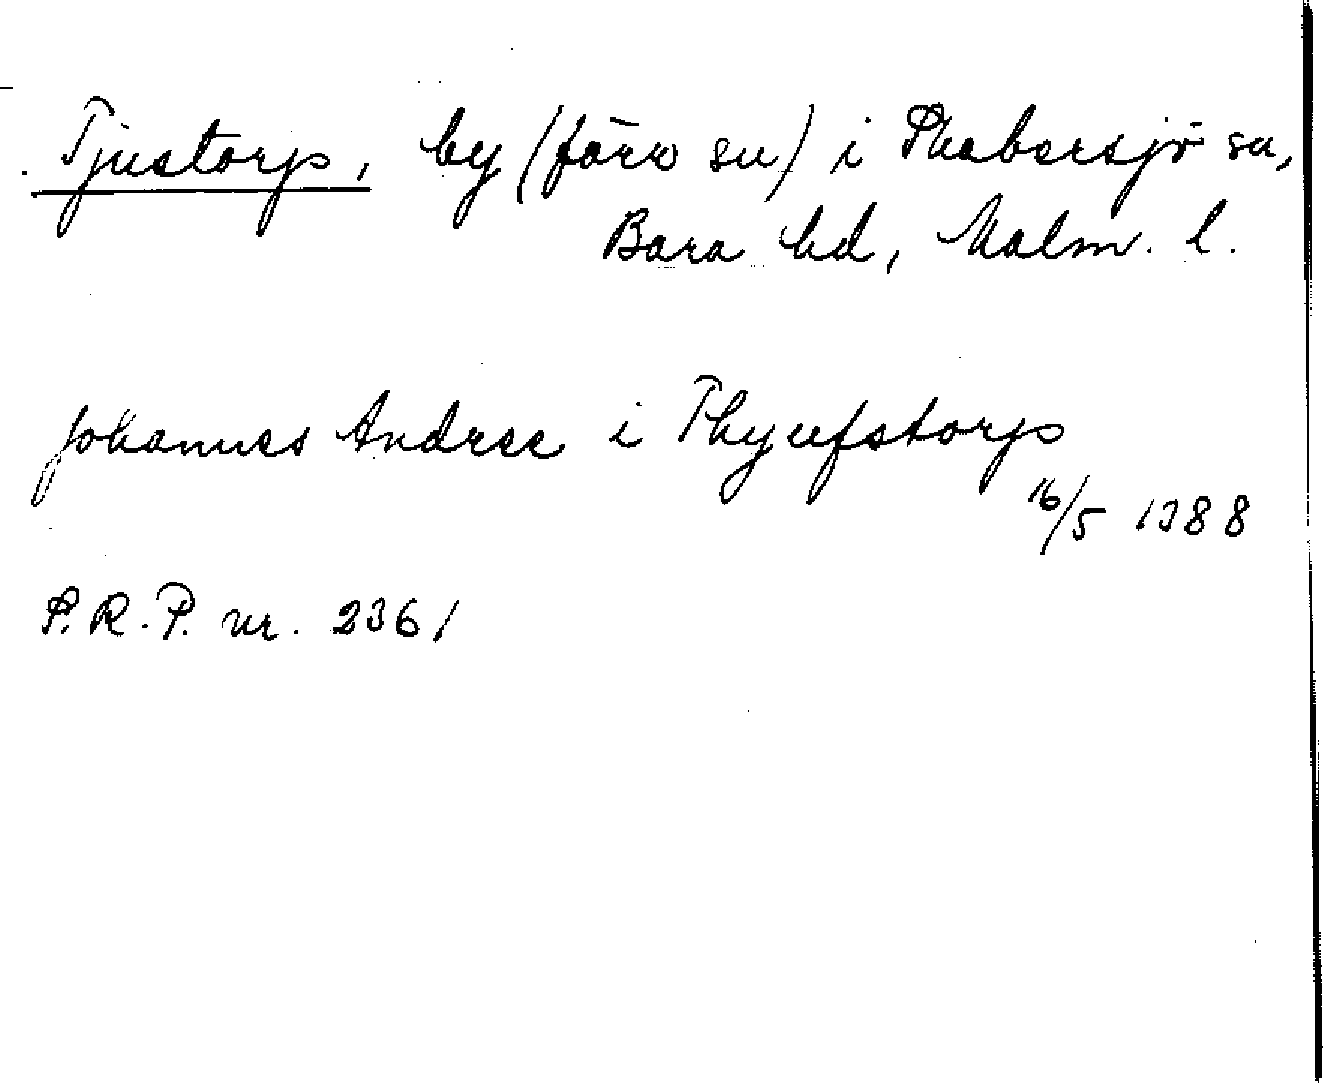 Tjustorp, by (förr sn) i Skabersjö sn,
Bara hd, Malm. l.
Johannes Andree i Thyufstorp
16/5 1388
S.R.P. nr. 2361